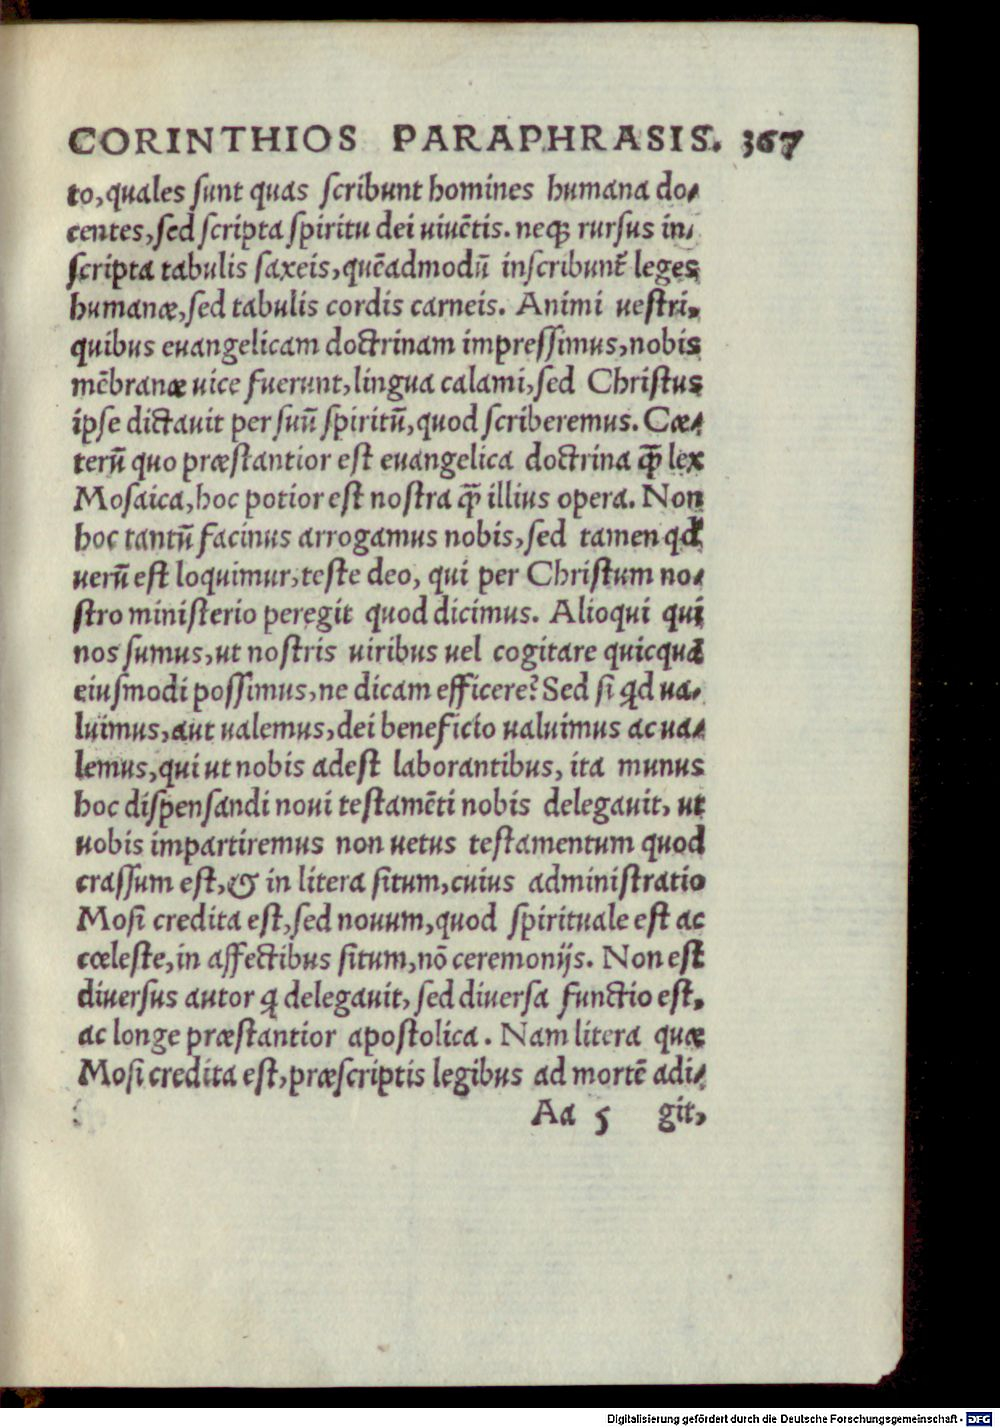 CORINTHIOS PARAPHRASIS. 367
to, quales sunt quas scribunt homines humana do-
centes, sed scripta spiritu dei uiuẽtis. neq; rursus in-
scripta tabulis saxeis, quẽadmodũ inscribunt̃ leges
humanæ, sed tabulis cordis carneis. Animi uestri,
quibus euangelicam doctrinam impressimus, nobis
mẽbranæ uice fuerunt, lingua calami, sed Christus
ipse dictauit per suũ spiritũ, quod scriberemus. Cæ-
terũ quo præstantior est euangelica doctrina q̃ lex
Mosaica, hoc potior est nostra q̃ illius opera. Non
hoc tantũ facinus arrogamus nobis, sed tamen qđ
uerũ est loquimur, teste deo, qui per Christum no-
stro ministerio peregit quod dicimus. Alioqui qui
nos sumus, ut nostris uiribus uel cogitare quicquã
eiusmodi possimus, ne dicam efficere? Sed si qd ua-
luimus, aut ualemus, dei beneficio ualuimus ac ua-
lemus, qui ut nobis adest laborantibus, ita munus
hoc dispensandi noui testamẽti nobis delegauit, ut
uobis impartiremus non uetus testamentum quod
crassum est, & in litera situm, cuius administratio
Mosi credita est, sed nouum, quod spirituale est ac
cœleste, in affectibus situm, nõ ceremonijs. Non est
diuersus autor q delegauit, sed diuersa functio est,
ac longe præstantior apostolica. Nam litera quæ
Mosi credita est, præscriptis legibus ad mortẽ adi-
Aa 5 git,
Digitalisierung gefördert durch die Deutsche Forschungsgemeinschaft - DFG